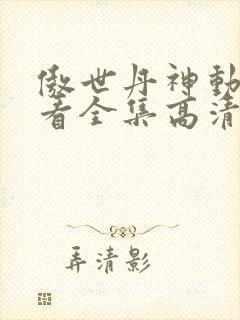 傲世丹神動
看全集高清
弄清影